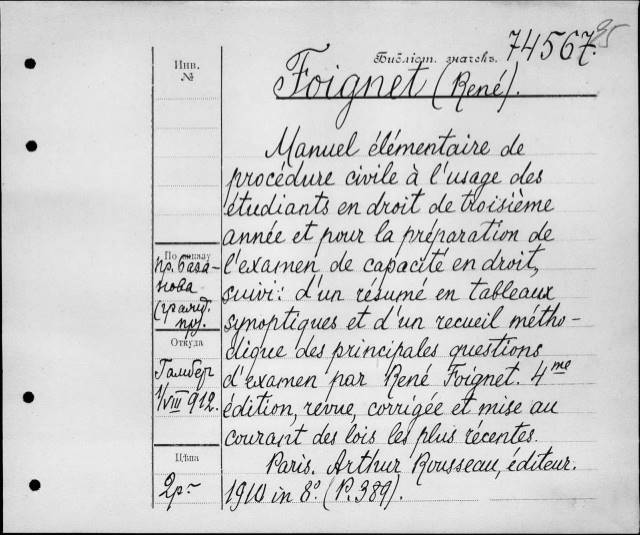 95
Библіот. значекъ. 74567.
Инв.
№
Foignet (René).
Manuel élémentaire de
procédure civile à l'usage des
étudiants en droit de troisième
année et pour la préparation de
l'examen de capacité en droit,
suivi: d'un résumé en tableaux
synoptiques et d'un recueil métho-
dique des principales questions
d'examen par René Foignet. 4me
édition, revue, corrigée et mise au
courant des lois les plus récentes.
Paris. Arthur Rousseau, éditeur.
1910 in 8º. (P. 389).
По
пр. База-
нова
(гражд.
пр).
Откуда
Гамбер
1/VIII 912.
Цѣна
2р-